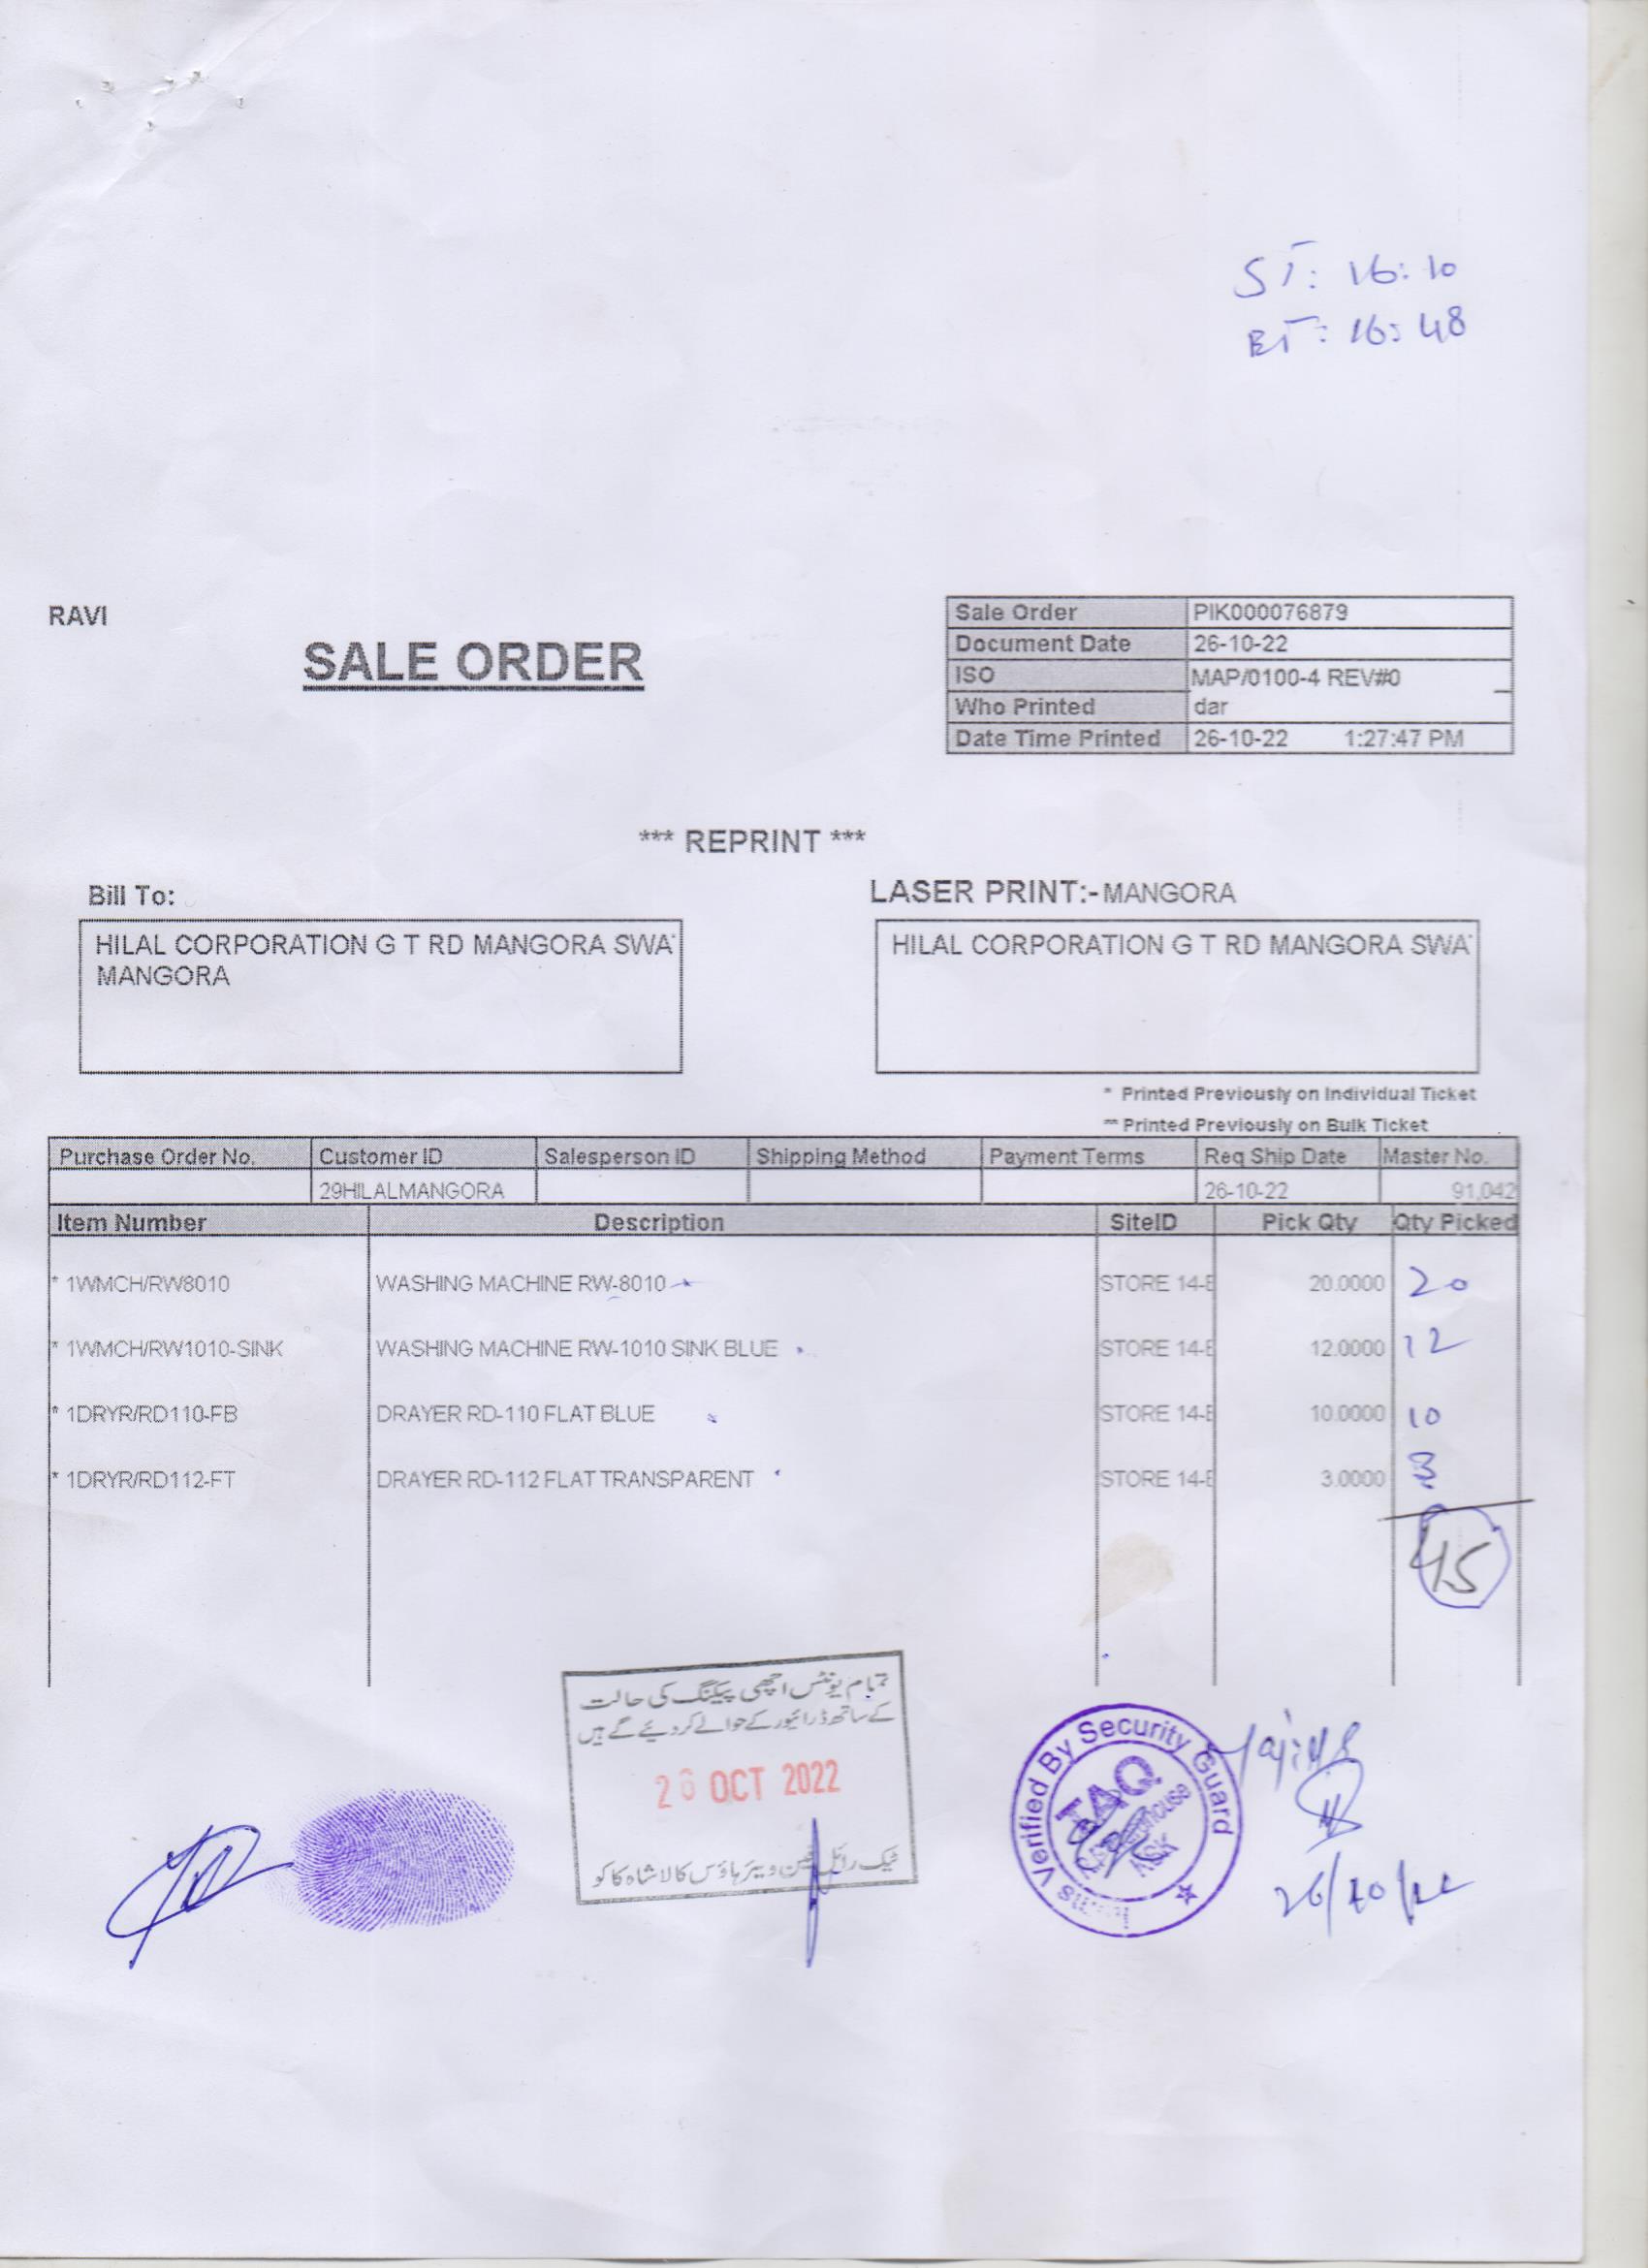 ST: 16:10
ET: 16:48
RAVI
SALE ORDER
Sale Order PIK000076879
Document Date 26-10-22
ISO MAP/0100-4 REV#0
Who Printed dar
Date Time Printed 26-10-22 1:27:47 PM
*** REPRINT ***
Bill To:
HILAL CORPORATION G T RD MANGORA SWA
MANGORA
LASER PRINT:- MANGORA
HILAL CORPORATION G T RD MANGORA SWA
* Printed Previously on Individual Ticket
** Printed Previously on Bulk Ticket
Purchase Order No. Customer ID Salesperson ID Shipping Method Payment Terms Req Ship Date Master No.
29HILALMANGORA 26-10-22 91,042
Item Number Description SiteID Pick Qty Qty Picked
* 1WMCH/RW8010 WASHING MACHINE RW-8010 STORE 14-E 20.0000 20
* 1WMCH/RW1010-SINK WASHING MACHINE RW-1010 SINK BLUE STORE 14-E 12.0000 12
* 1DRYR/RD110-FB DRAYER RD-110 FLAT BLUE STORE 14-E 10.0000 10
* 1DRYR/RD112-FT DRAYER RD-112 FLAT TRANSPARENT STORE 14-E 3.0000 3
45
تمام یونٹس اچھی پیکنگ کی حالت
کے ساتھ ڈرائیور کے حوالے کردیئے گے ہیں
26 OCT 2022
ٹیک رائل فین ویئر ہاؤس کالا شاہ کاکو
Verified By Security Guard
TAQ
WAREHOUSE
KSK
26/10/22